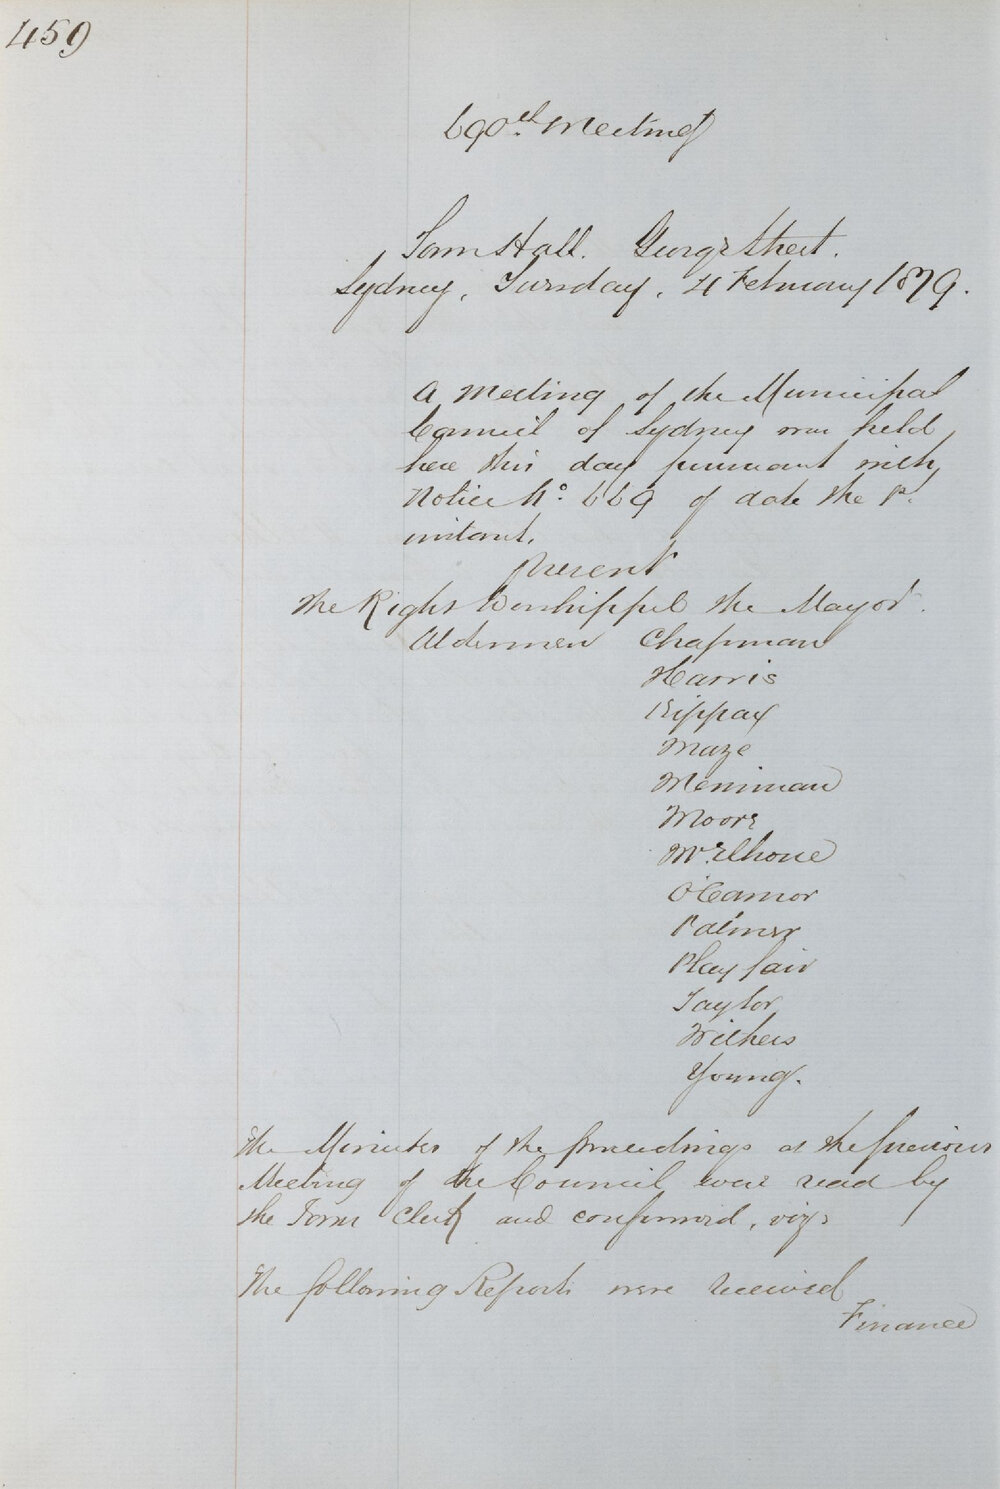 459
690th Meeting
Town Hall. George Street.
Sydney, Tuesday, 4 February 1879.
A Meeting of the Municipal
Council of Sydney was held
here this day pursuant with
Notice No. 669 of date the 1st.
instant.
Present
The Right Worshipful the Mayor.
Aldermen Chapman
Harris
Kippax
Maze
Merriman
Moore
McElhone
O'Connor
Palmer
Playfair
Taylor
Withers
Young.
The Minutes of the proceedings at the previous
Meeting of the Council were read by
the Town Clerk and confirmed, viz:
The following Reports were received
Finance